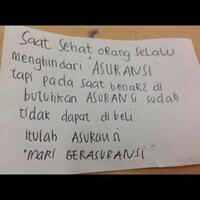 Saat Sehat orang selalu
menghindari "ASURANSI"
tapi pada saat benar2 di
butuhkan ASURANSI sudah
tidak dapat di beli
Itulah ASURANSI
"mari BERASURANSI"